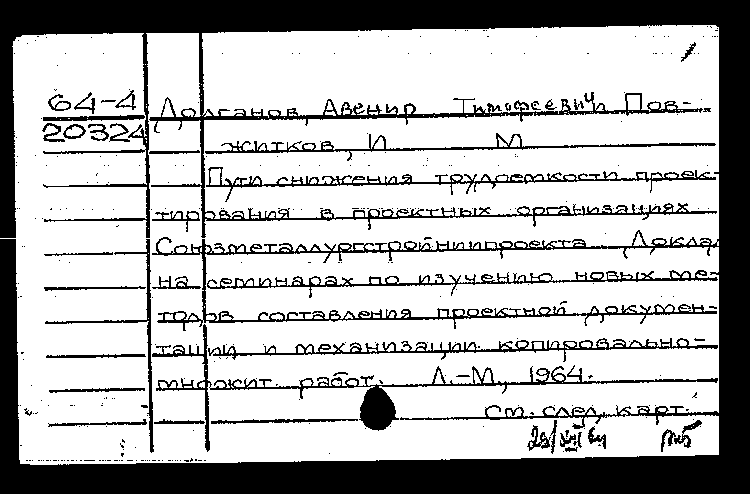 64-4
20324
Долганов, Авенир Тимофеевич и Пов-
житков, И М
Пути снижения трудоемкости проек-
тирования в проектных организациях
Союзметаллургстройниипроекта. Доклад
на семинарах по изучению новых ме-
тодов составления проектной докумен-
тации и механизации копировально-
множит. работ. Л.-М., 1964.
см. след. карт.